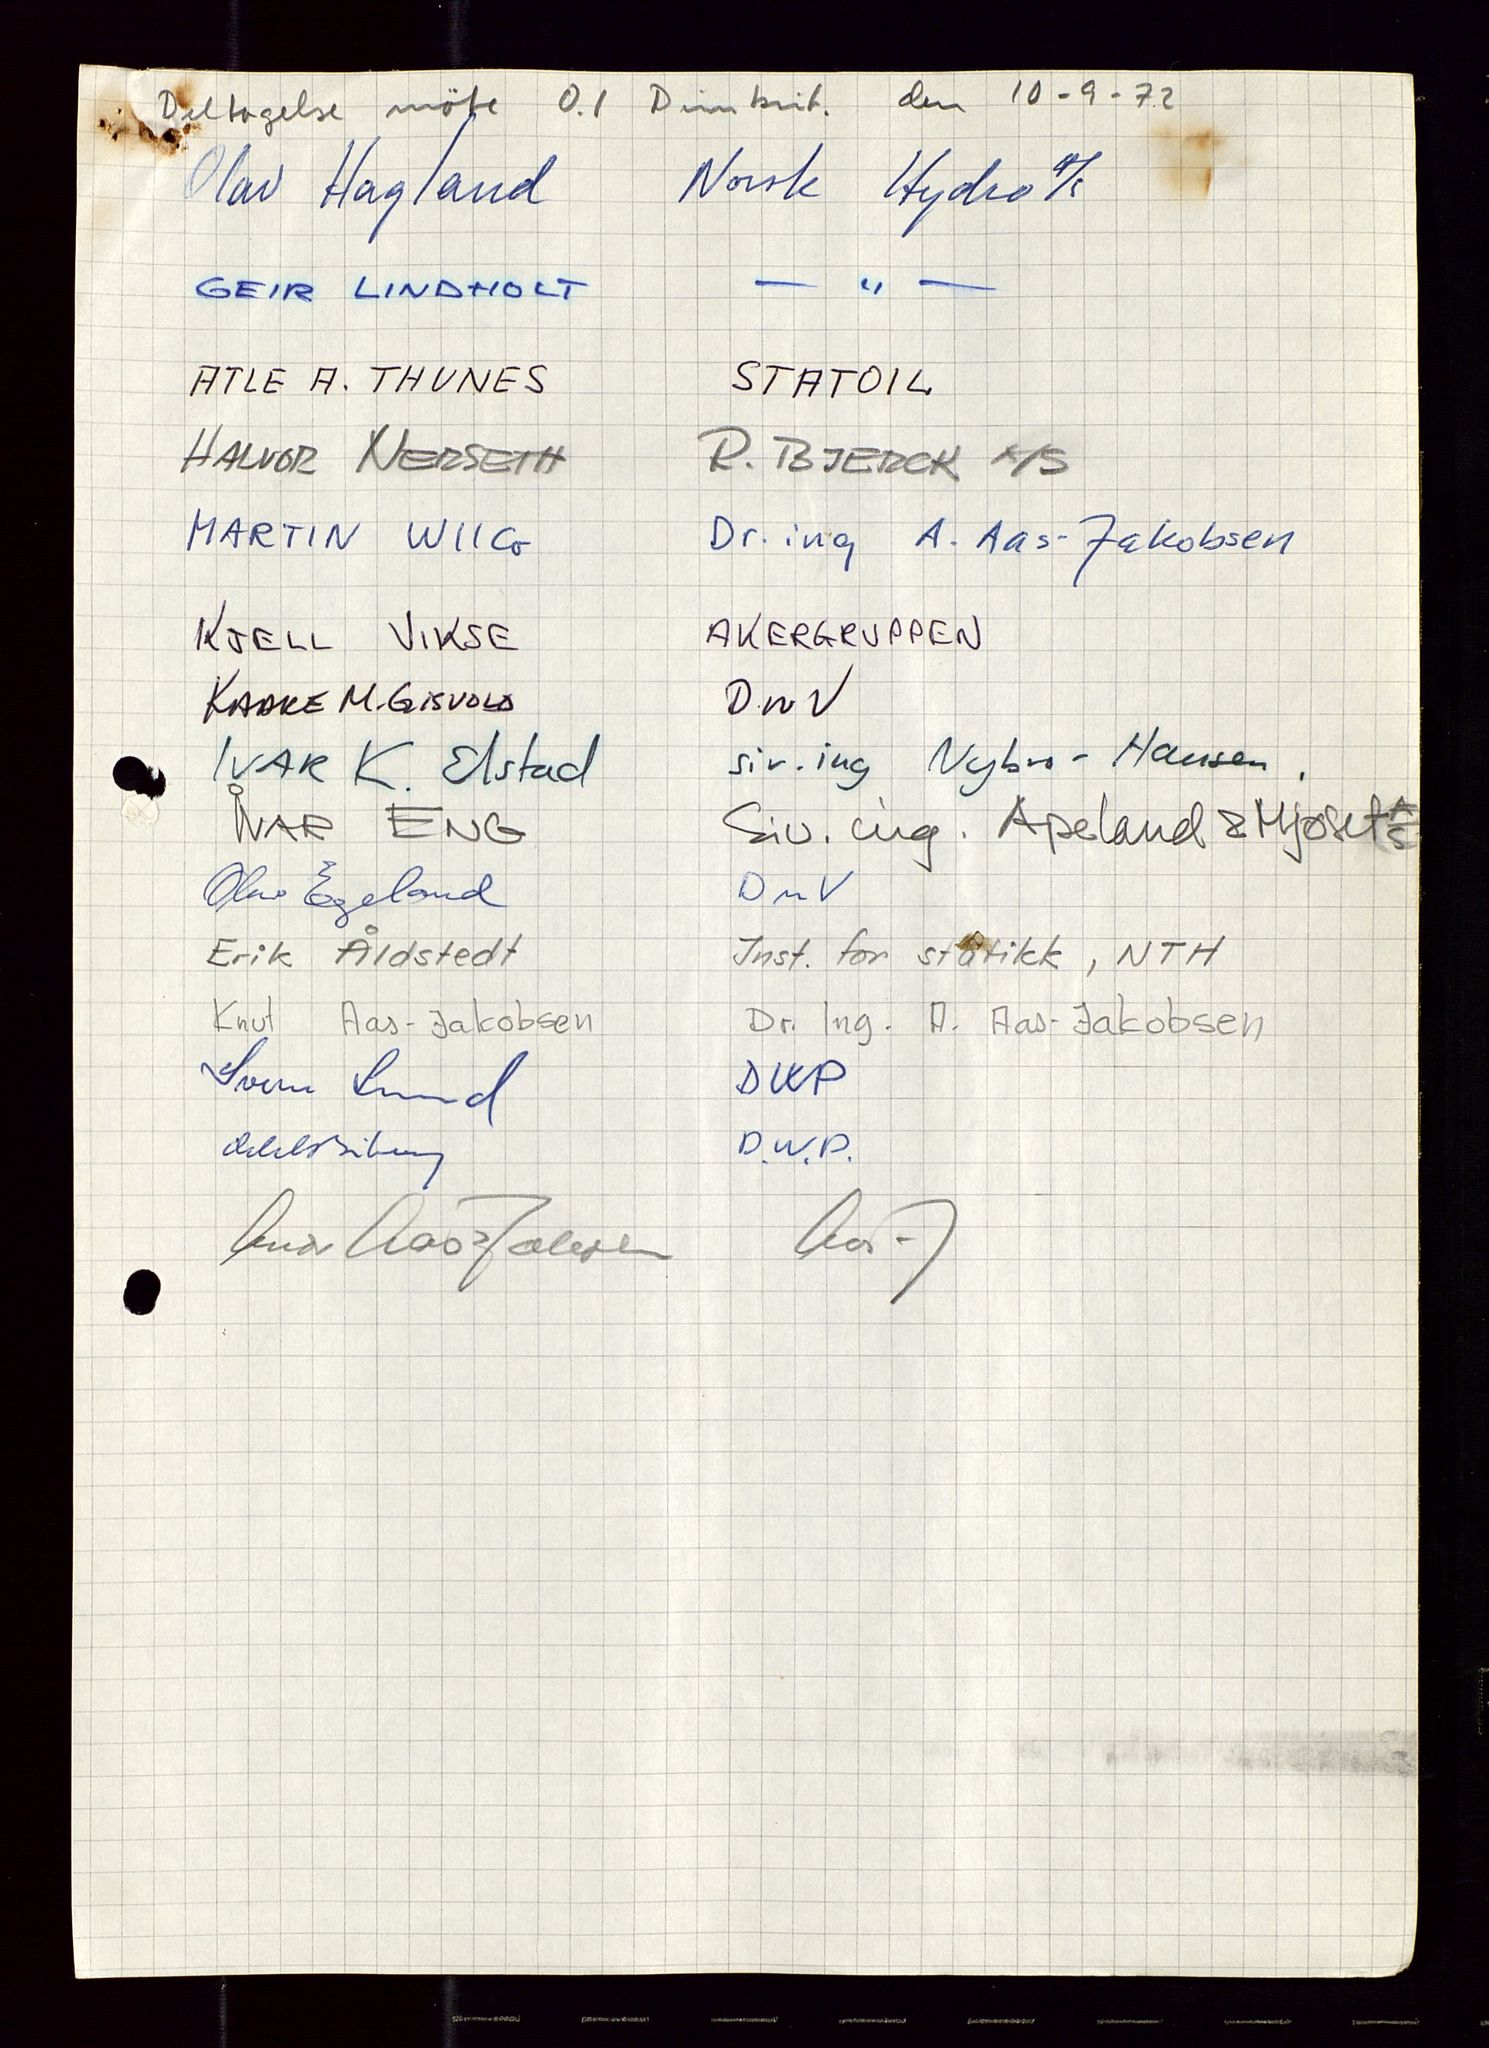 Deltagelse möte 0.1 Dimkrit. den 10-9-72
Olav Hagland Norsk Hydro A/S
GEIR LINDHOLT — " —
ATLE A. THUNES STATOIL
HALVOR NERSETH R. BJERCK A/S
MARTIN WIIG Dr. ing A. Aas-Jakobsen
KJELL VIKSE AKERGRUPPEN
KAARE M. GISVOLD D.n V
IVAR K. Elstad siv. ing Nybro-Hansen.
IVAR ENG Siv. ing. Apeland & Mjøset A/S
Olav Egeland DnV
Erik Åldstedt Inst. for statikk, NTH
Knut Aas-Jakobsen Dr. Ing. A. Aas-Jakobsen
Svein Lund DWP
D.W.P.
Aas-Jakobsen Aas-J